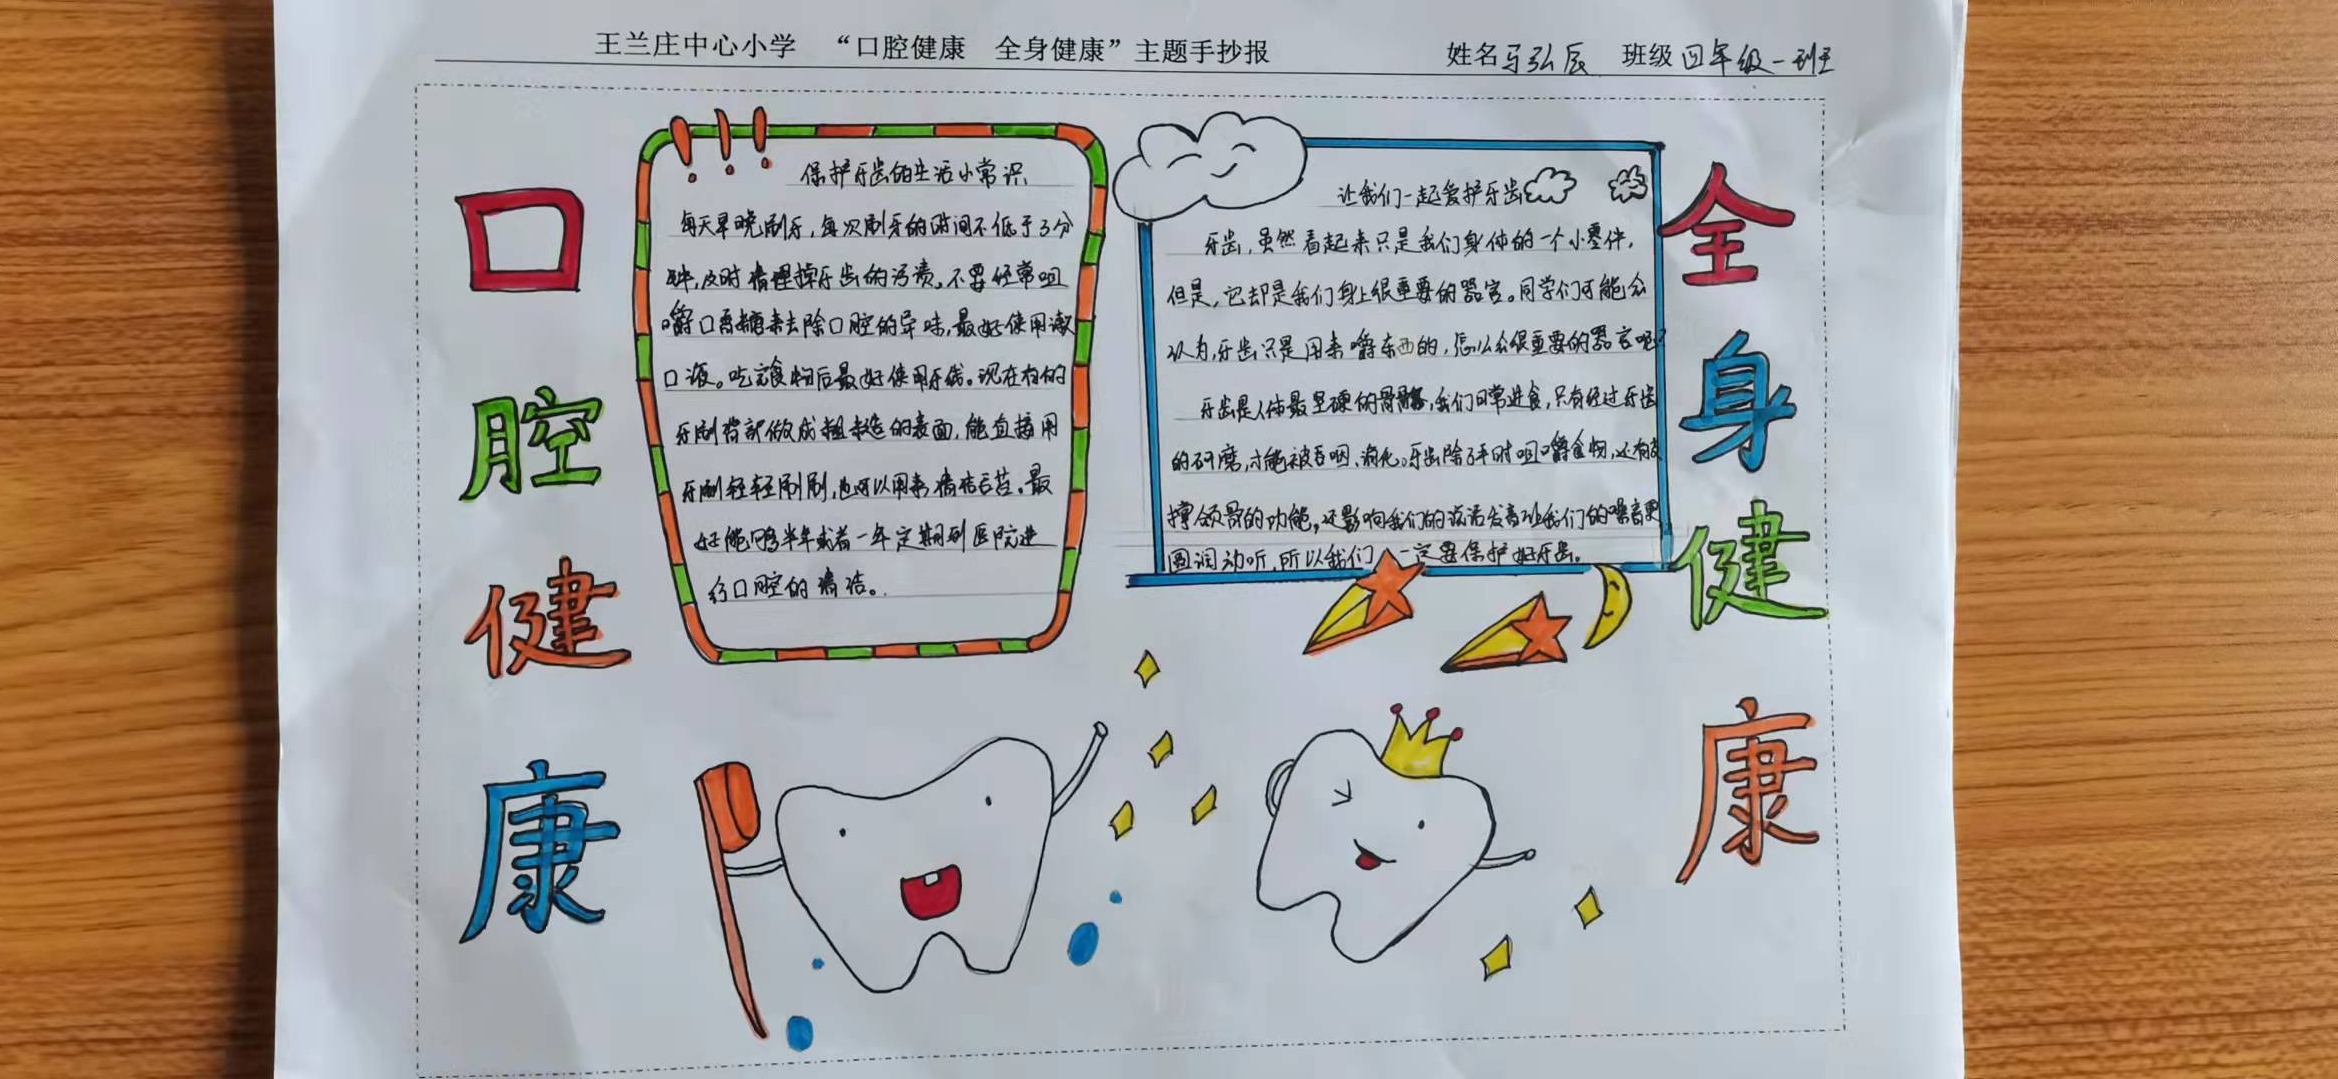 王兰庄中心小学 “口腔健康 全身健康”主题手抄报 姓名 马弘辰 班级 四年级一班
口腔健康
保护牙齿的生活小常识
每天早晚刷牙，每次刷牙的时间不低于3分
钟，及时清理掉牙齿的污渍。不要经常咀
嚼口香糖来去除口腔的异味，最好使用漱
口液。吃完食物后最好使用牙线。现在有的
牙刷背部做成粗糙的表面，能直接用
牙刷轻轻刷刷，也可以用来清洁舌苔。最
好能够半年或者一年定期到医院进
行口腔的清洁。
让我们一起爱护牙齿
牙齿，虽然看起来只是我们身体的一个小零件，
但是，它却是我们身上很重要的器官。同学们可能会
认为，牙齿只是用来嚼东西的，怎么会很重要的器官呢？
牙齿是人体最坚硬的骨骼，我们日常进食，只有经过牙齿
的研磨，才能被吞咽、消化。牙齿除了平时咀嚼食物，还有支
撑颌骨的功能，还影响我们的说话发音让我们的嗓音更
圆润动听，所以我们一定要保护好牙齿。
全身健康